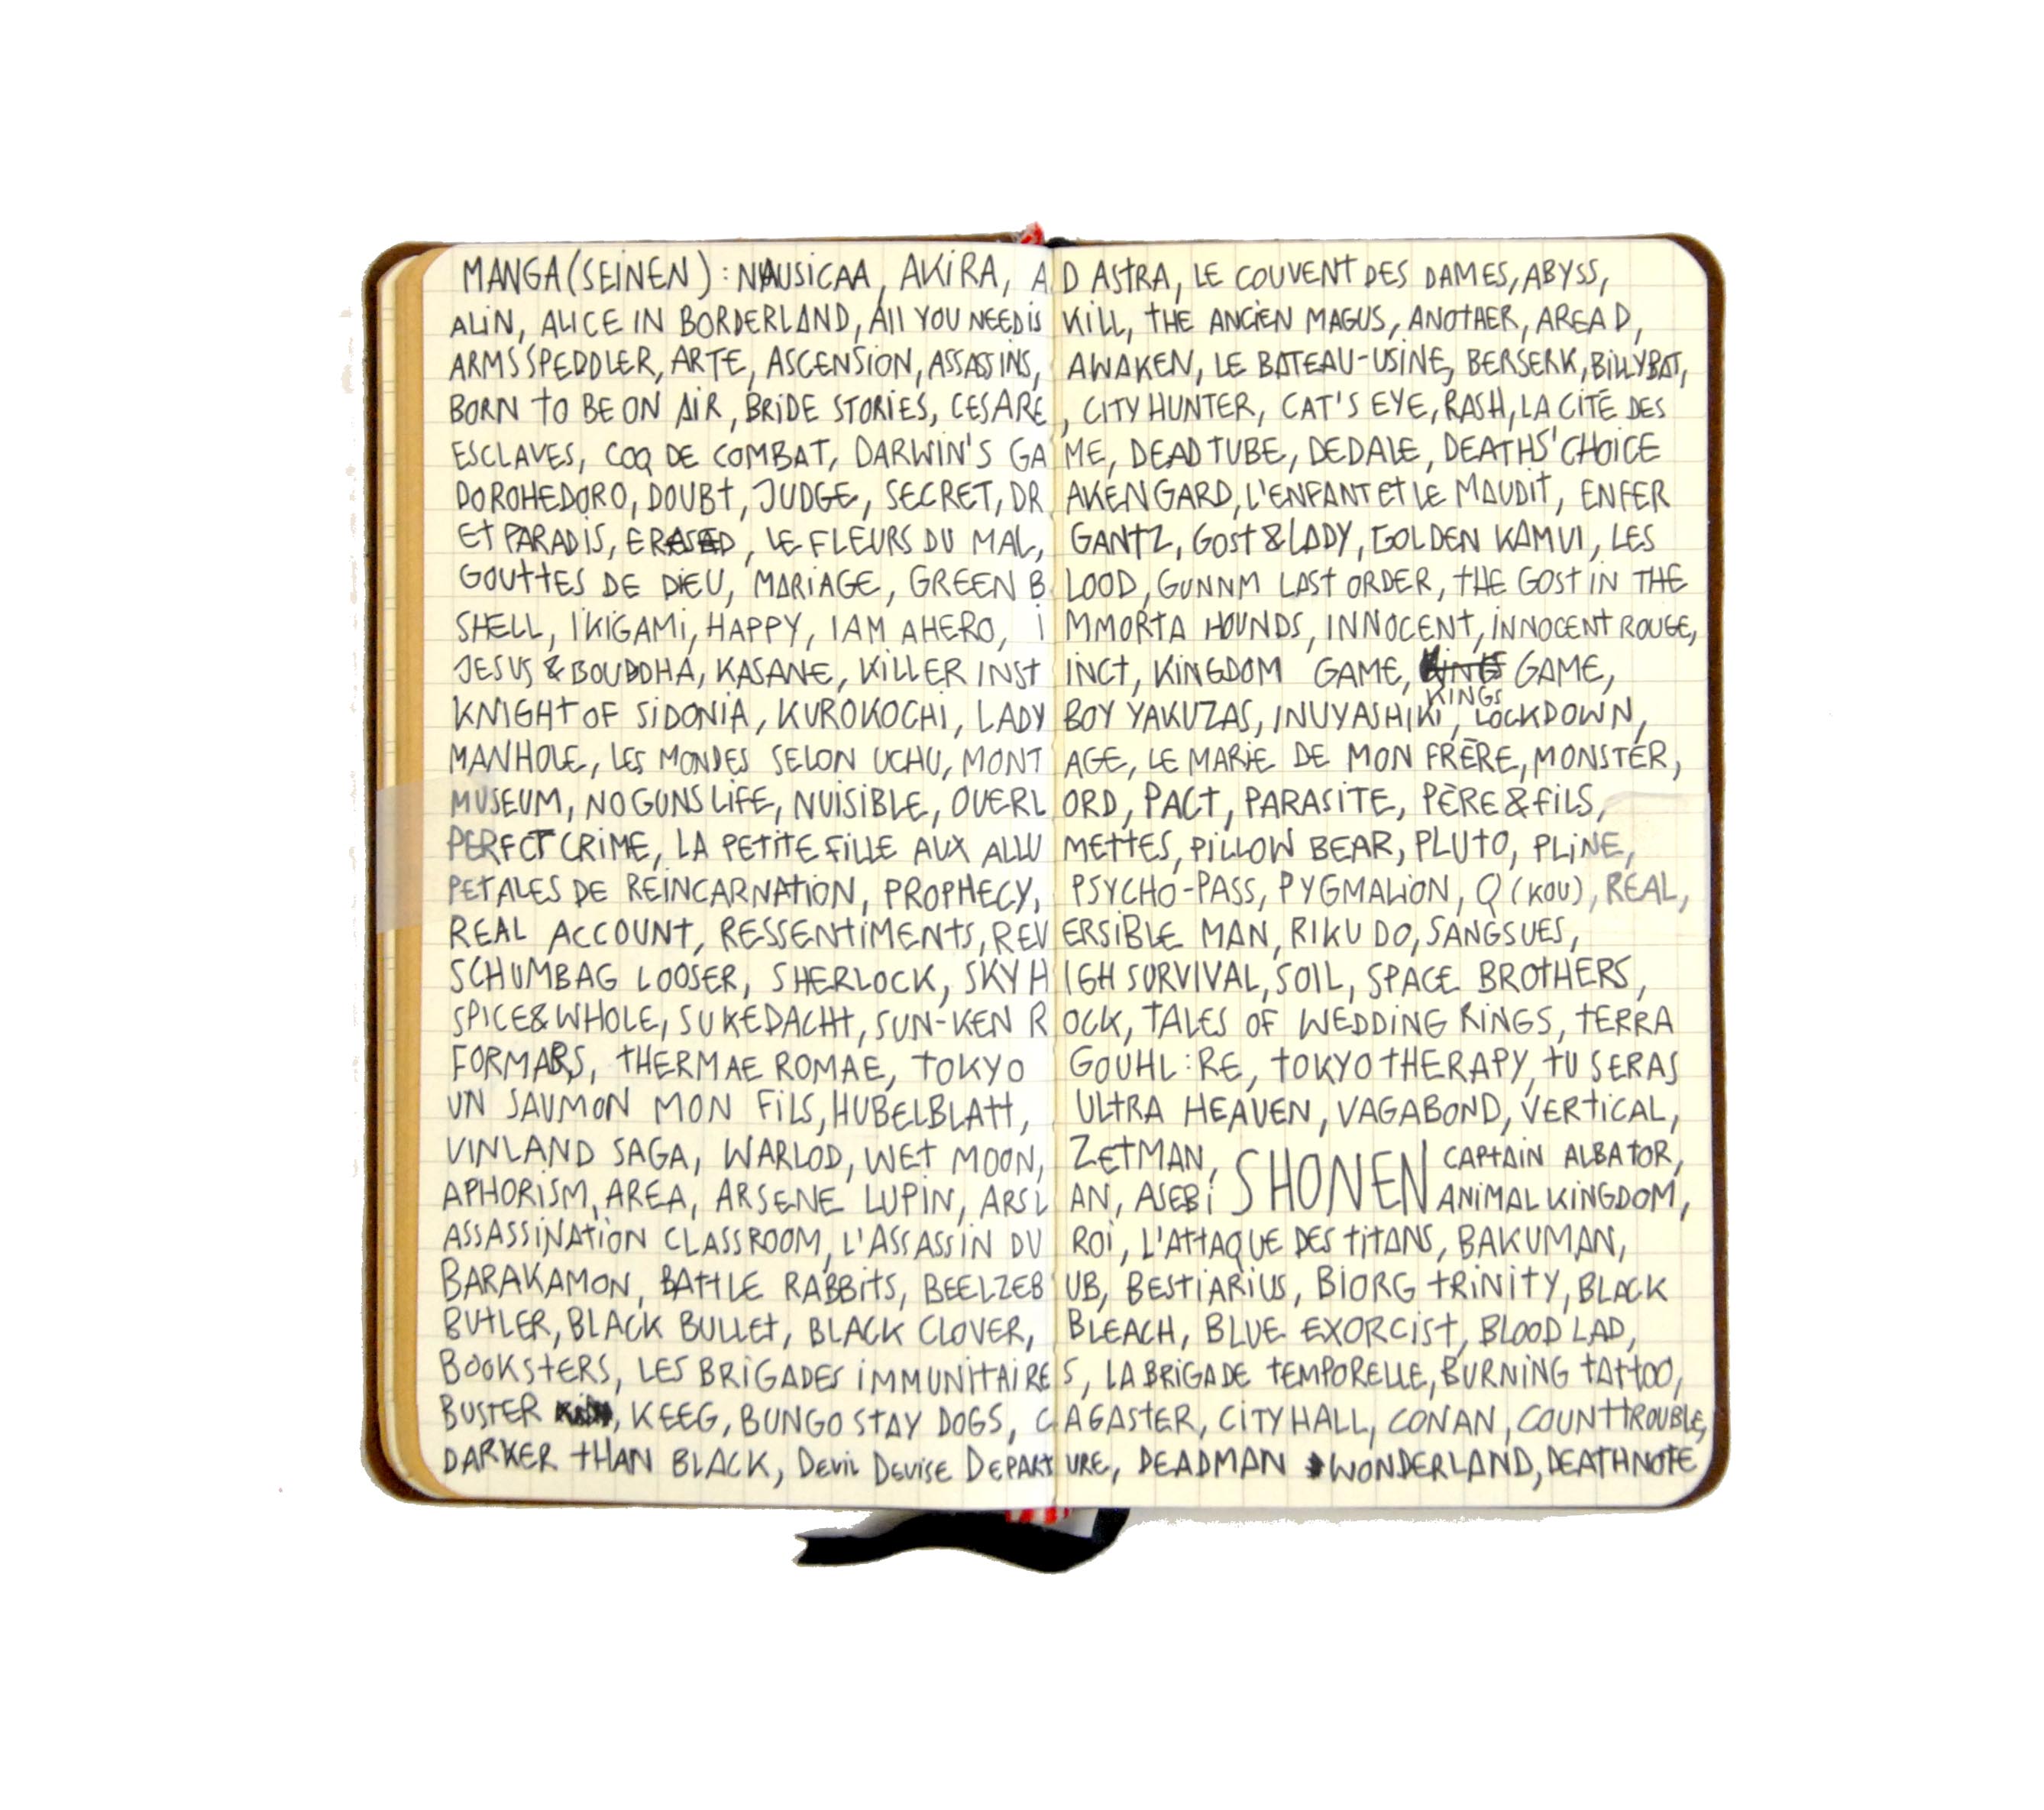 MANGA (SEINEN) : NAUSICAA, AKIRA, AD ASTRA, LE COUVENT DES DAMES, ABYSS,
ALIN, ALICE IN BORDERLAND, All YOU NEED IS KILL, THE ANCIEN MAGUS, ANOTHER, AREA D,
ARMS SPEDDLER, ARTE, ASCENSION, ASSASSINS, AWAKEN, LE BATEAU-USINE, BERSERK, BILLYBAT,
BORN TO BE ON AIR, BRIDE STORIES, CESARE, CITY HUNTER, CAT'S EYE, RASH, LA CITÉ DES
ESCLAVES, COQ DE COMBAT, DARWIN'S GAME, DEAD TUBE, DEDALE, DEATHS' CHOICE
DOROHEDORO, DOUBT, JUDGE, SECRET, DRAKENGARD, L'ENFANT ET LE MAUDIT, ENFER
ET PARADIS, ERASED, LE FLEURS DU MAL, GANTZ, GOST & LADY, GOLDEN KAMUI, LES
GOUTTES DE DIEU, MARIAGE, GREEN BLOOD, GUNNM LAST ORDER, THE GOST IN THE
SHELL, IKIGAMI, HAPPY, I AM A HERO, IMMORTA HOUNDS, INNOCENT, INNOCENT ROUGE,
JESUS & BOUDDHA, KASANE, KILLER INSTINCT, KINGDOM GAME, KINGS GAME,
KNIGHT OF SIDONIA, KUROKOCHI, LADYBOY YAKUZAS, INUYASHIKI, LOCKDOWN,
MANHOLE, LES MONDES SELON UCHU, MONTAGE, LE MARIE DE MON FRÈRE, MONSTER,
MUSEUM, NO GUNS LIFE, NUISIBLE, OVERLORD, PACT, PARASITE, PÈRE & FILS,
PERFCT CRIME, LA PETITE FILLE AUX ALLUMETTES, PILLOW BEAR, PLUTO, PLINE,
PETALES DE REINCARNATION, PROPHECY, PSYCHO-PASS, PYGMALION, Q (KOU), REAL,
REAL ACCOUNT, RESSENTIMENTS, REVERSIBLE MAN, RIKU DO, SANGSUES,
SCHUMBAG LOOSER, SHERLOCK, SKY HIGH SURVIVAL, SOIL, SPACE BROTHERS,
SPICE & WHOLE, SUKEDACHI, SUN-KEN ROCK, TALES OF WEDDING RINGS, TERRA
FORMARS, THERMAE ROMAE, TOKYO GOUHL : RE, TOKYO THERAPY, TU SERAS
UN SAUMON MON FILS, HUBELBLATT, ULTRA HEAVEN, VAGABOND, VERTICAL,
VINLAND SAGA, WARLOD, WET MOON, ZETMAN, SHONEN CAPTAIN ALBATOR,
APHORISM, AREA, ARSENE LUPIN, ARSLAN, ASEBI ANIMAL KINGDOM,
ASSASSINATION CLASSROOM, L'ASSASSIN DU ROI, L'ATTAQUE DES TITANS, BAKUMAN,
BARAKAMON, BATTLE RABBITS, BEELZEBUB, BESTIARIUS, BIORG TRINITY, BLACK
BUTLER, BLACK BULLET, BLACK CLOVER, BLEACH, BLUE EXORCIST, BLOOD LAD,
BOOKSTERS, LES BRIGADES IMMUNITAIRES, LA BRIGADE TEMPORELLE, BURNING TATTOO,
BUSTER, KEEG, BUNGO STAY DOGS, CAGASTER, CITY HALL, CONAN, COUNTTROUBLE,
DARKER THAN BLACK, Devil Devise DEPARTURE, DEADMAN WONDERLAND, DEATHNOTE